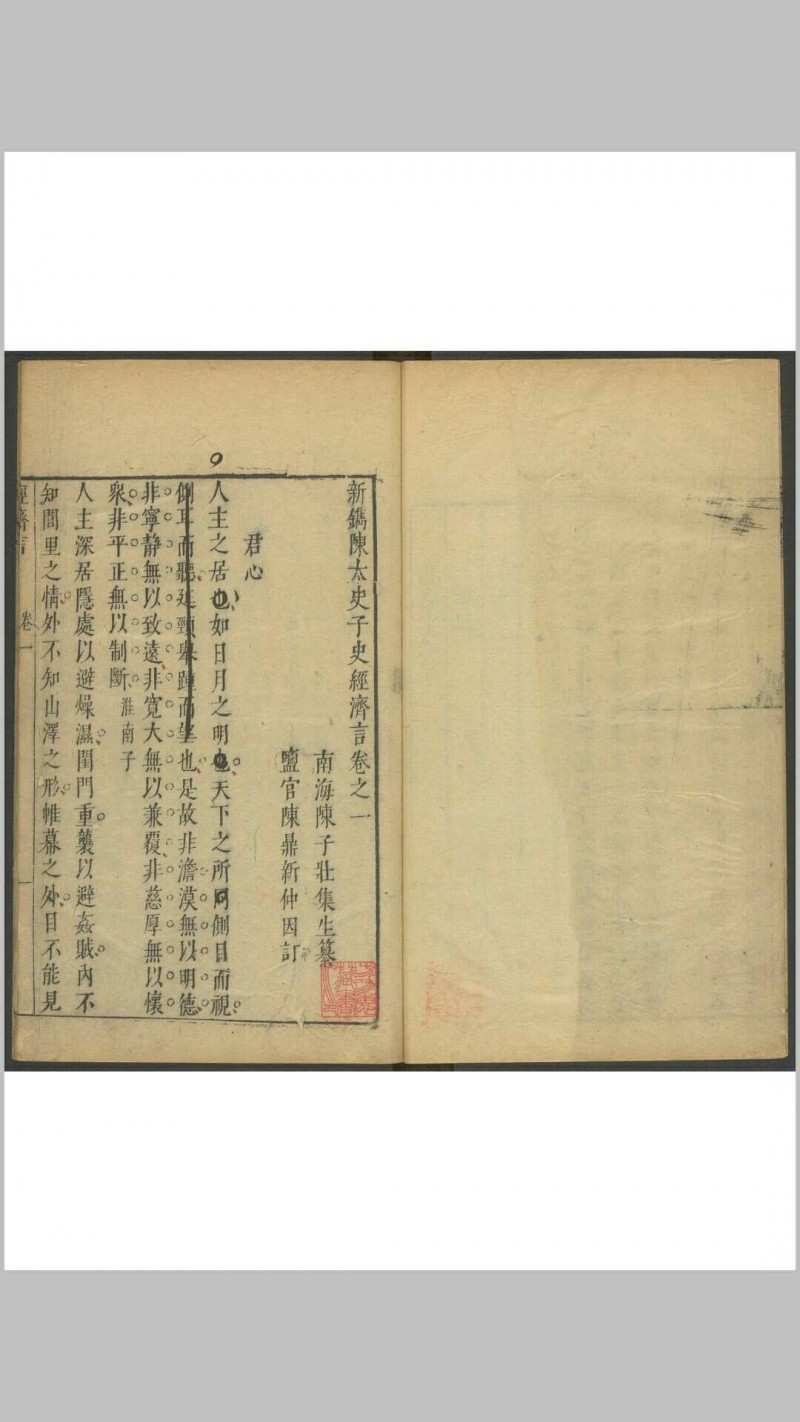 新鐫陳太史子史經濟言卷之一
南海陳子壯集生纂
鹽官陳鼎新仲因訂
君心
人主之居也如日月之明也天下之所同側目而視
側耳而聽延頸舉踵而望也是故非澹漠無以明德
非寧静無以致遠非寬大無以兼覆非慈厚無以懷
衆非平正無以制斷淮南子
人主深居隱處以避燥濕閨門重襲以避姦賊內不
知閭里之情外不知山澤之形帷幕之外目不能見
經濟言 卷一 一